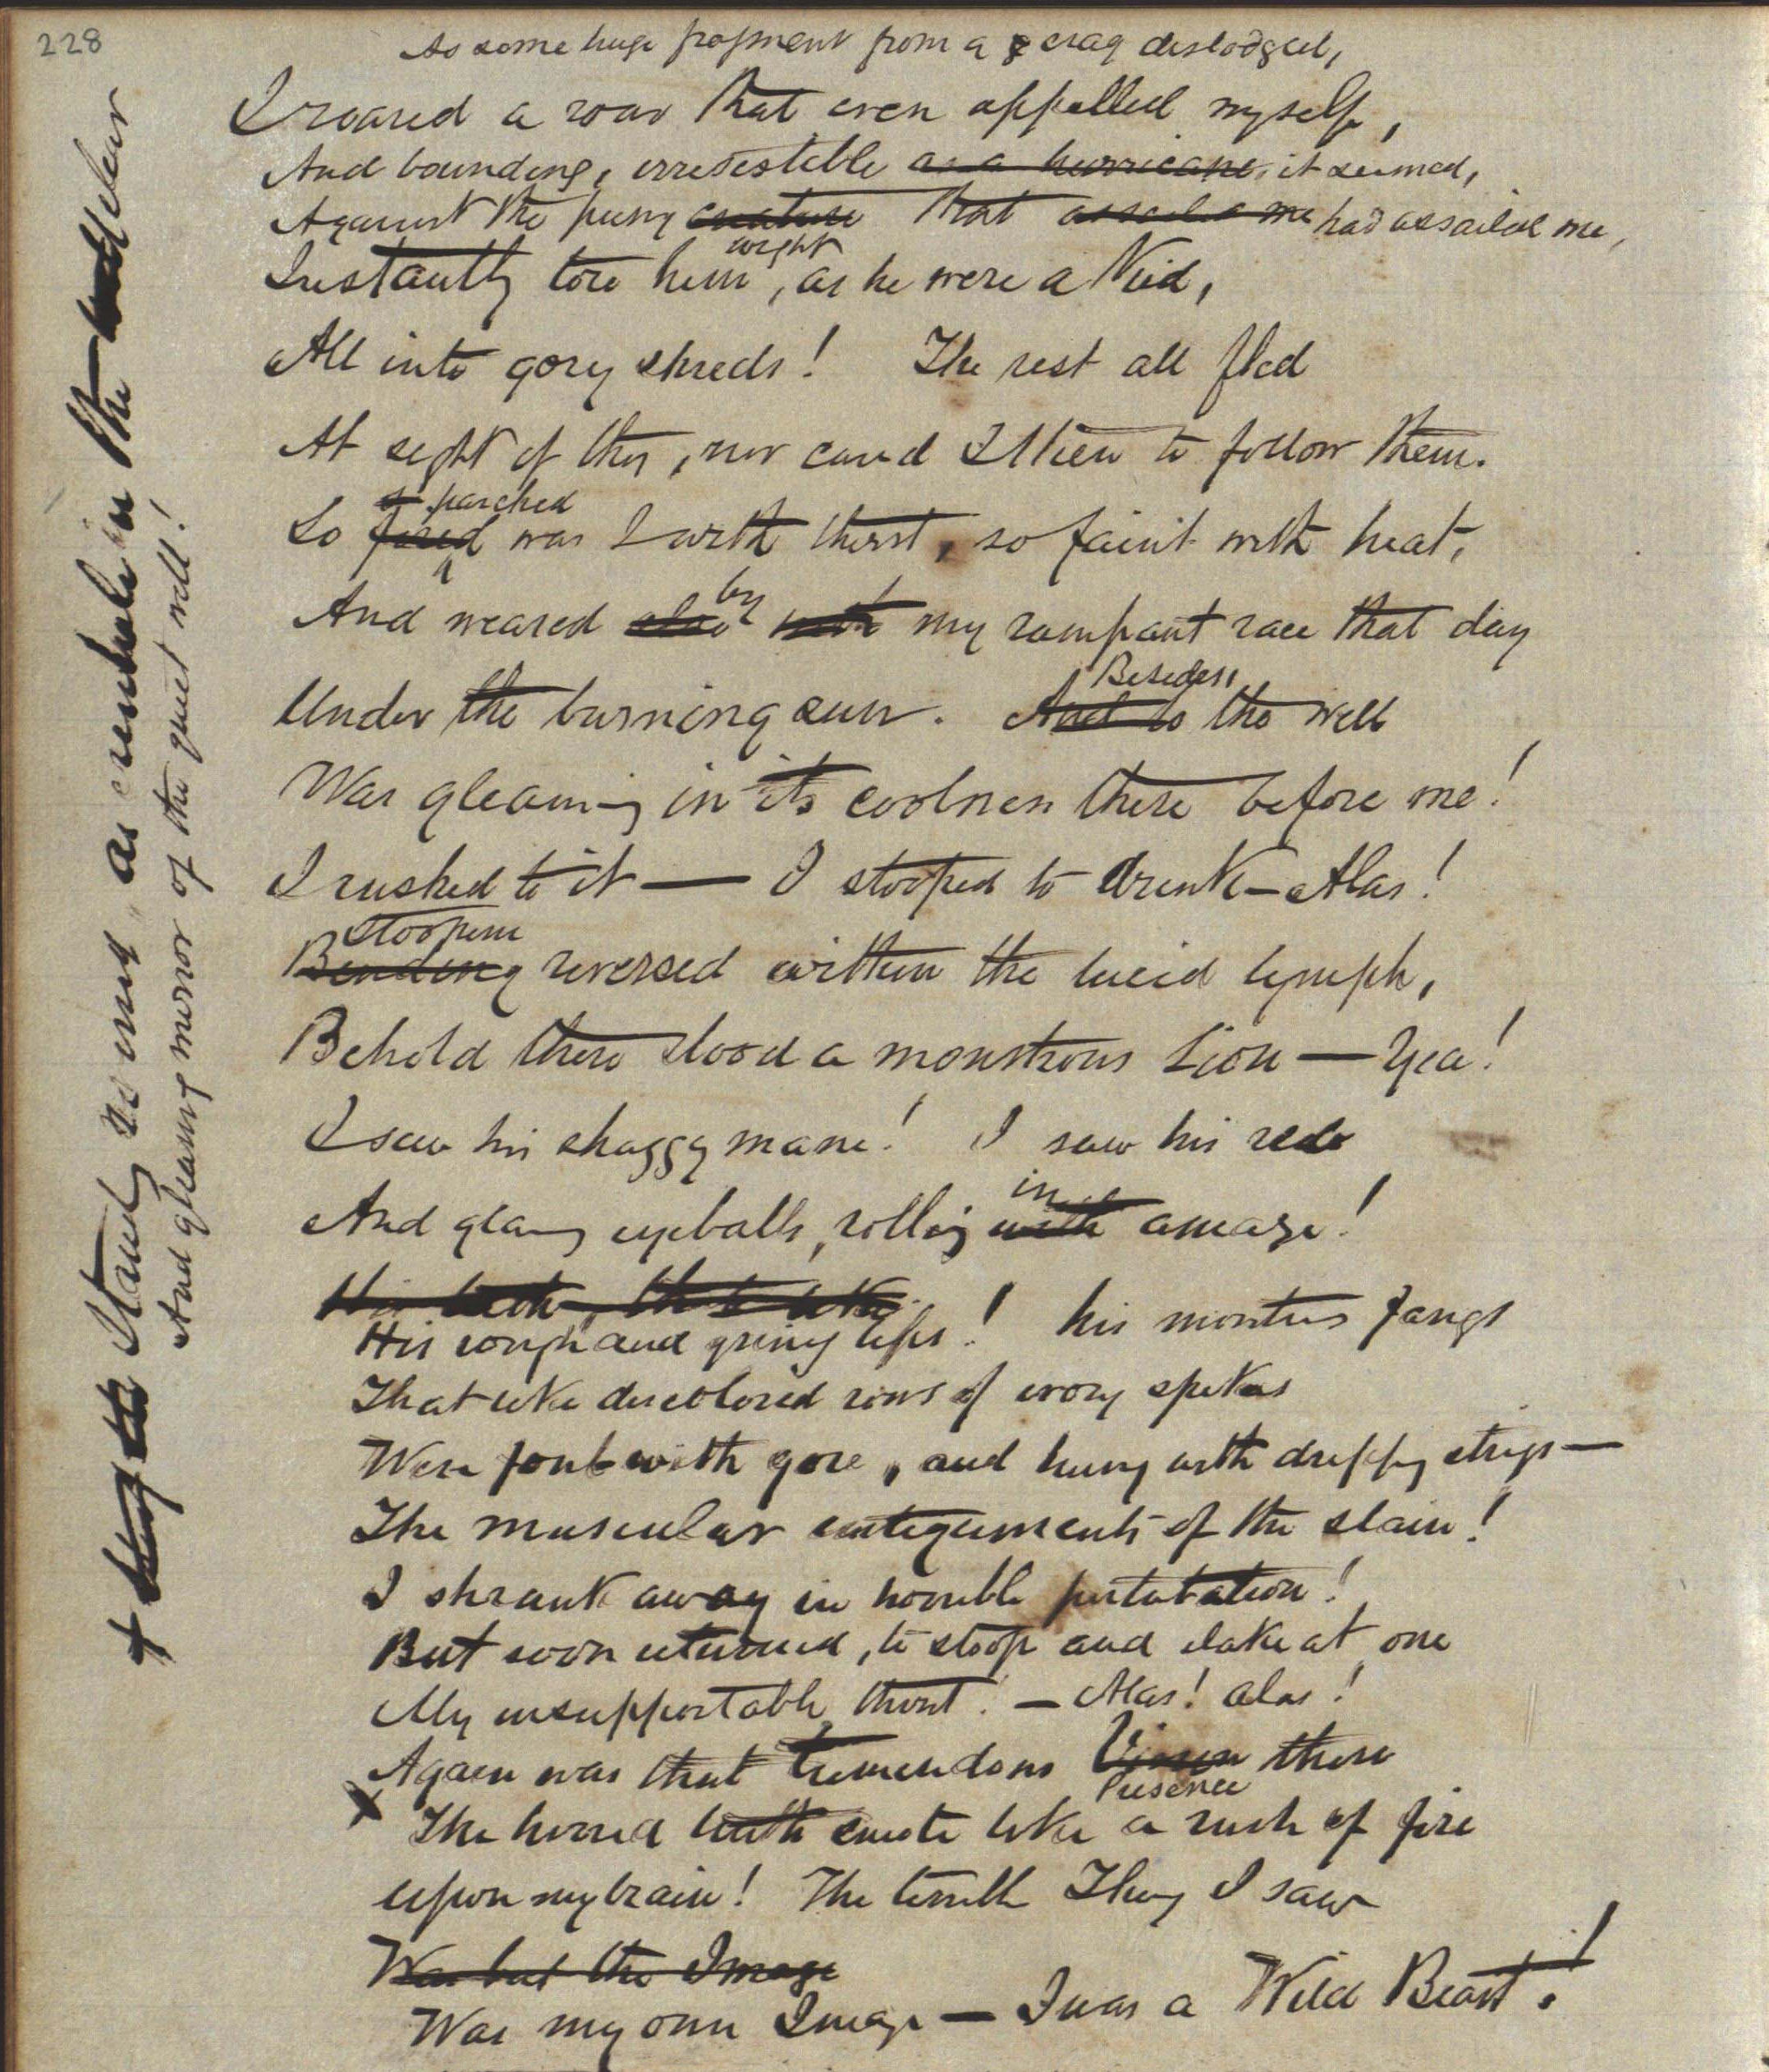 228
As some huge fragment from a crag dislodged,
I roared a roar that even appalled myself,
And bounding, irresistible as a hurricane, it seemed,
Against the puny creature that assailed me had assailed me,
wight
Instantly tore him, as he were a Kid,
All into gory shreds! The rest all fled
At sight of this, nor cared I then to follow them.
parched
So fired was I with thirst, so faint with heat,
by
And wearied also with my rampant race that day
Besides,
Under the burning sun. And so the well
Was gleaming in its coolness there before me!
I rushed to it — I stooped to drink — Alas!
Stooping
Bending reversed within the lucid lymph,
Behold there stood a monstrous Lion — Yea!
I saw his shaggy mane! I saw his red
in
And glaring eyeballs, rolling with amaze!
His teeth, that like
His rough and griny lips! his monstrous fangs
That like discolored rows of ivory spikes
Were foul with gore, and hung with dripping strips —
The muscular integuments of the slain!
I shrank away in horrible perturbation!
But soon returned, to stoop and slake at once
My insupportable thirst. — Alas! alas!
Again was that tremendous Vision there
Presence
X The horrid truth smote like a rush of fire
upon my brain! The terrible Thing I saw
Was but the Image
Was my own Image — I was a Wild Beast!
Standing as in the clear
And gleaming mirror of the quiet well!